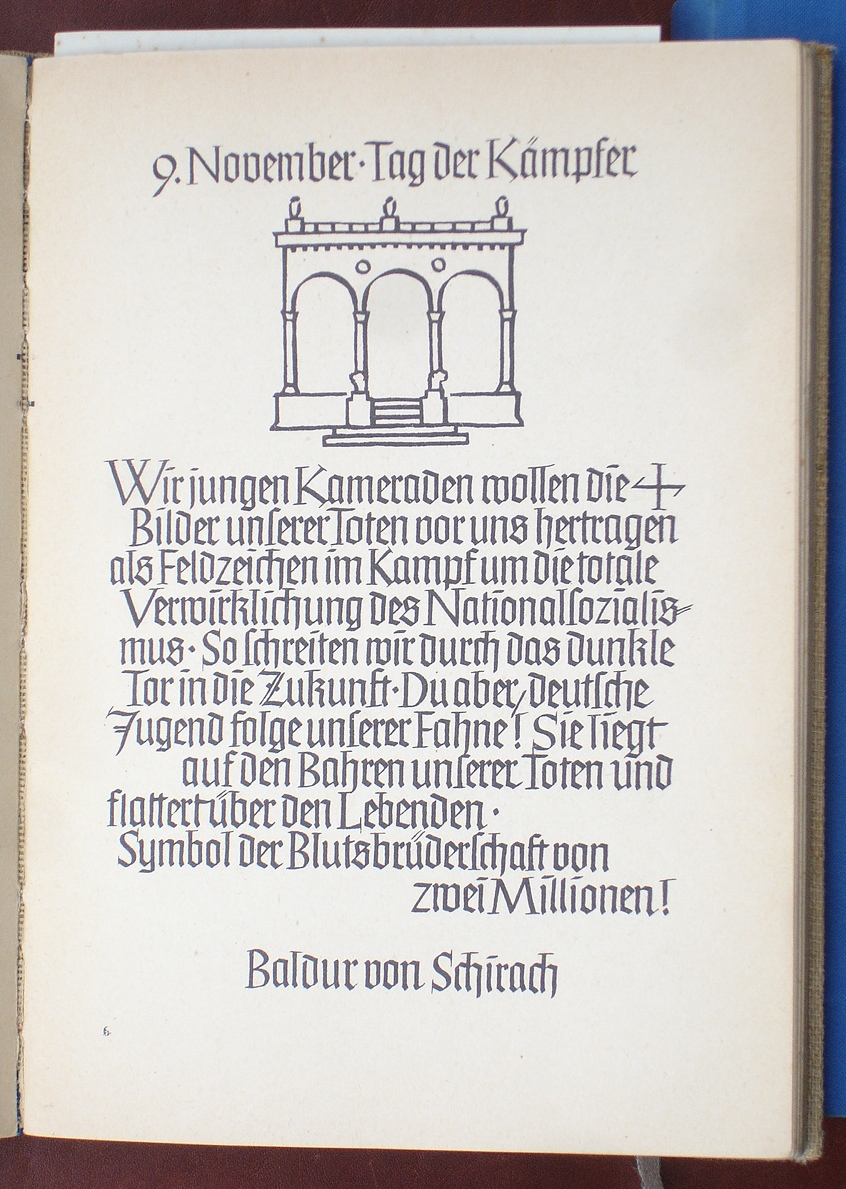 9. November · Tag der Kämpfer
Wir jungen Kameraden wollen die
Bilder unserer Toten vor uns hertragen
als Feldzeichen im Kampf um die totale
Verwirklichung des Nationalsozialis=
mus · So schreiten wir durch das dunkle
Tor in die Zukunft · Du aber, deutsche
Jugend folge unserer Fahne! Sie liegt
auf den Bahren unserer Toten und
flattert über den Lebenden ·
Symbol der Blutsbrüderschaft von
zwei Millionen!
Baldur von Schirach
6.